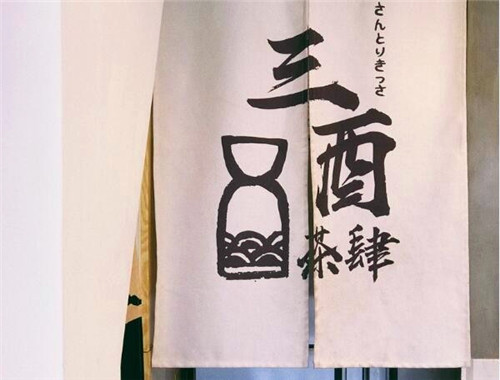 さんとりきっさ
三酉
茶肆